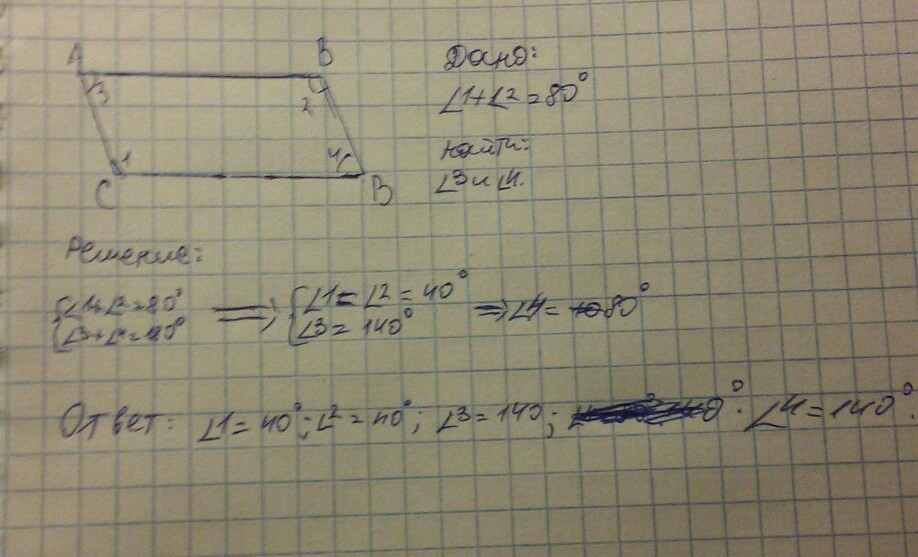 A B
3 2
1 4
C B
Дано:
∠1+∠2=80°
Найти:
∠3 и ∠4.
Решение:
∠3= 140°
{∠1=∠2=40°
=> ∠4= 80°
Ответ: ∠1=40°; ∠2=40°; ∠3=140; ∠4=140°